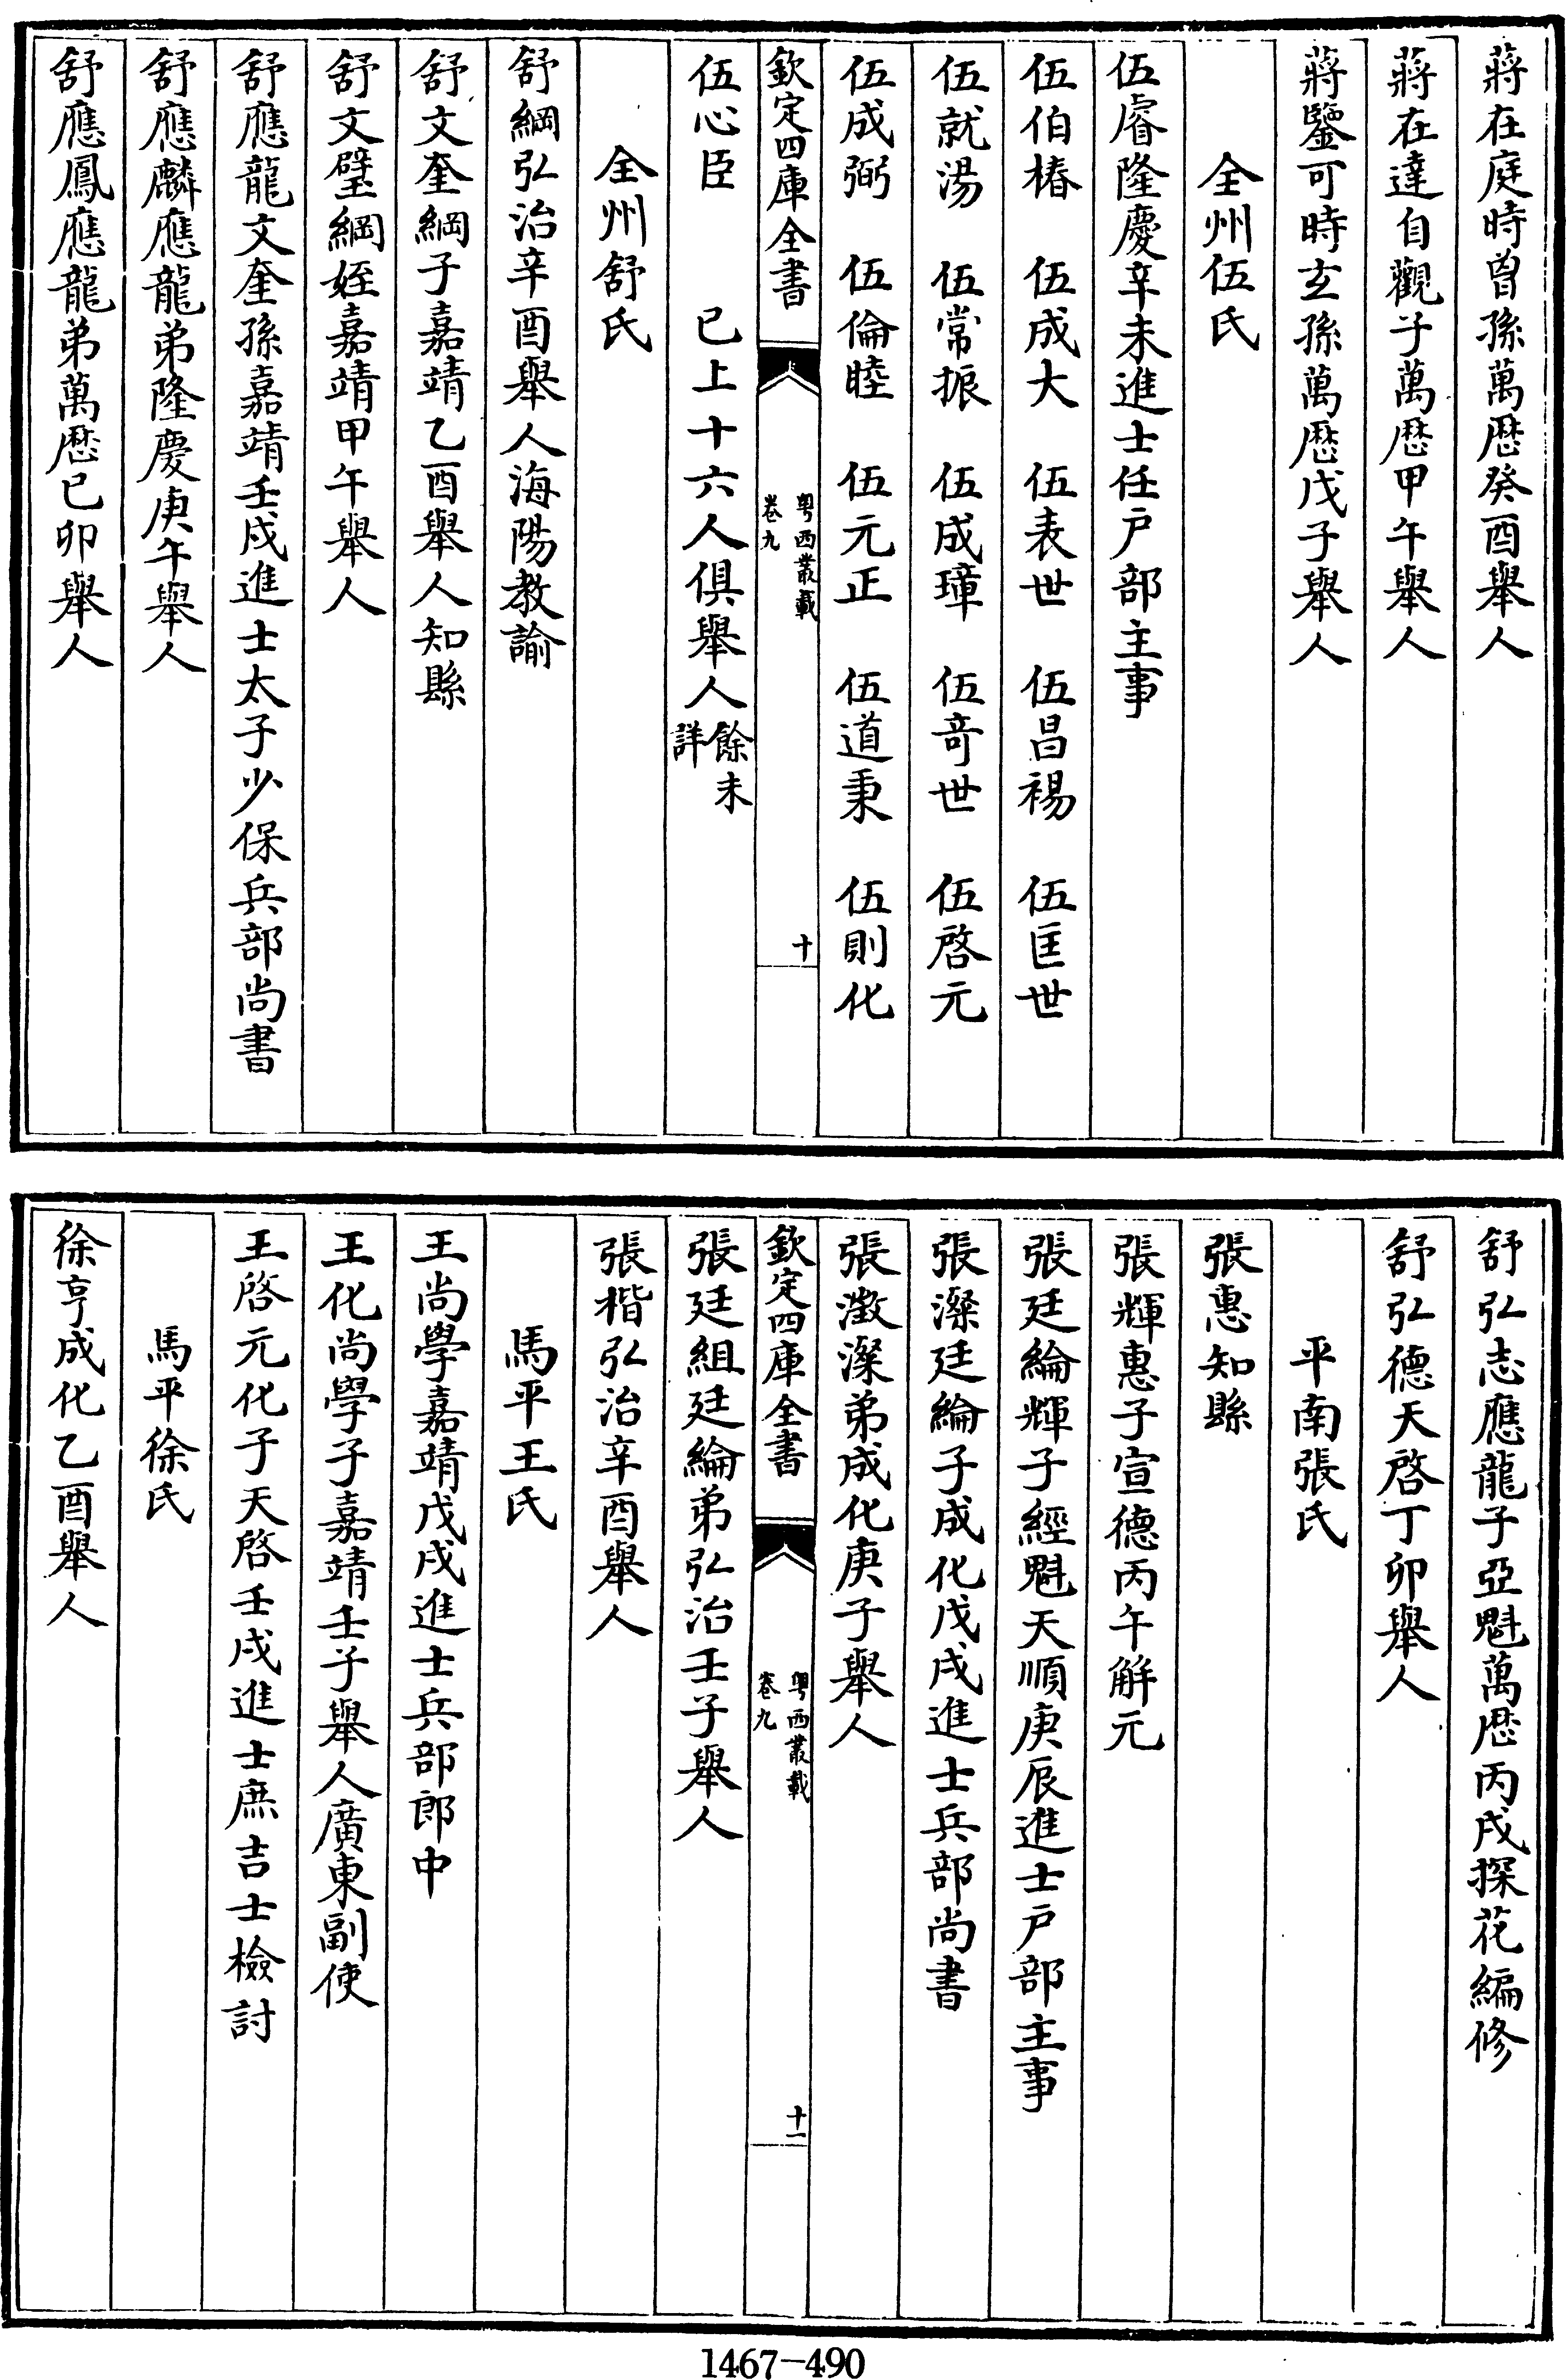 蔣在庭時曾孫萬歴癸酉舉人
蔣在達自觀子萬歴甲午舉人
蔣鑒可時玄孫萬歴戊子舉人
全州伍氏
伍睿隆慶辛未進士任户部主事
伍伯椿　伍成大　伍表世　伍昌禓　伍匡世
伍就湯　伍常振　伍成璋　伍奇世　伍啓元
伍成弼　伍倫睦　伍元正　伍道秉　伍則化
欽定四庫全書
粵西叢載
卷九
十
伍心臣　已上十六人俱舉人餘未詳
全州舒氏
舒綱弘治辛酉舉人海陽教諭
舒文奎綱子嘉靖乙酉舉人知縣
舒文璧綱姪嘉靖甲午舉人
舒應龍文奎孫嘉靖壬戌進士太子少保兵部尚書
舒應麟應龍弟隆慶庚午舉人
舒應鳳應龍弟萬歴已卯舉人
舒弘志應龍子亞魁萬歴丙戌探花編修
舒弘德天啓丁卯舉人
平南張氏
張惠知縣
張輝惠子宣德丙午解元
張廷綸輝子經魁天順庚辰進士户部主事
張澯廷綸子成化戊戌進士兵部尚書
張澂澯弟成化庚子舉人
欽定四庫全書
粵西叢載
卷九
十一
張廷組廷綸弟弘治壬子舉人
張楷弘治辛酉舉人
馬平王氏
王尚學嘉靖戊戌進士兵部郎中
王化尚學子嘉靖壬子舉人廣東副使
王啓元化子天啓壬戌進士庶吉士檢討
馬平徐氏
徐亨成化乙酉舉人
1467-490